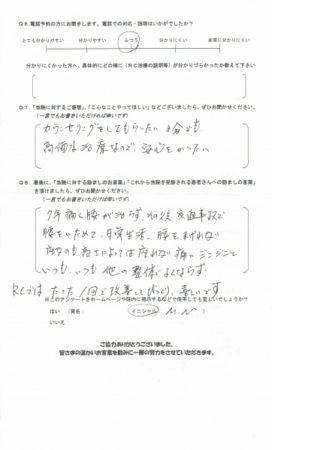 Q6.電話予約の方にお聞きします。電話での対応・説明はいかがでしたか？
とても分かりやすい 分かりやすい ふつう 分かりにくい 非常に分かりにくい
分かりにくかった方へ、具体的にどの様に（RC治療の説明等）が分かりづらかったか教えて下さい
Q7.「当院に対するご要望」、「こんなことやってほしい」などございましたら、ぜひお聞かせください。
（一言でもお書きいただければ幸いです）
カウンセリングをしてもらいたい
高価な治療なので、
Q8.最後に、「当院に対する励ましのお言葉」「これから当院を受診される患者さんへの励ましの言葉」
を頂けましたら、ぜひお聞かせください。
（一言でもお書きいただければ幸いです）
7年痛く腰が治らず、その後交通事故で
腰をいためて、日常生活、腰をまげれない
高さによっては座れない痛いジンジンと
いつも、いつも他の整体でよくならず、
RCでは、たった1回で改善してびっくり、嬉しいです
※このアンケートをホームページや院内に掲示するなどで使用しても宜しいでしょうか？
はい （署名： イニシャル M.N ）
いいえ
ご協力ありがとうございました。
皆さまの温かいお言葉を励みに一層の努力をさせていただきます。